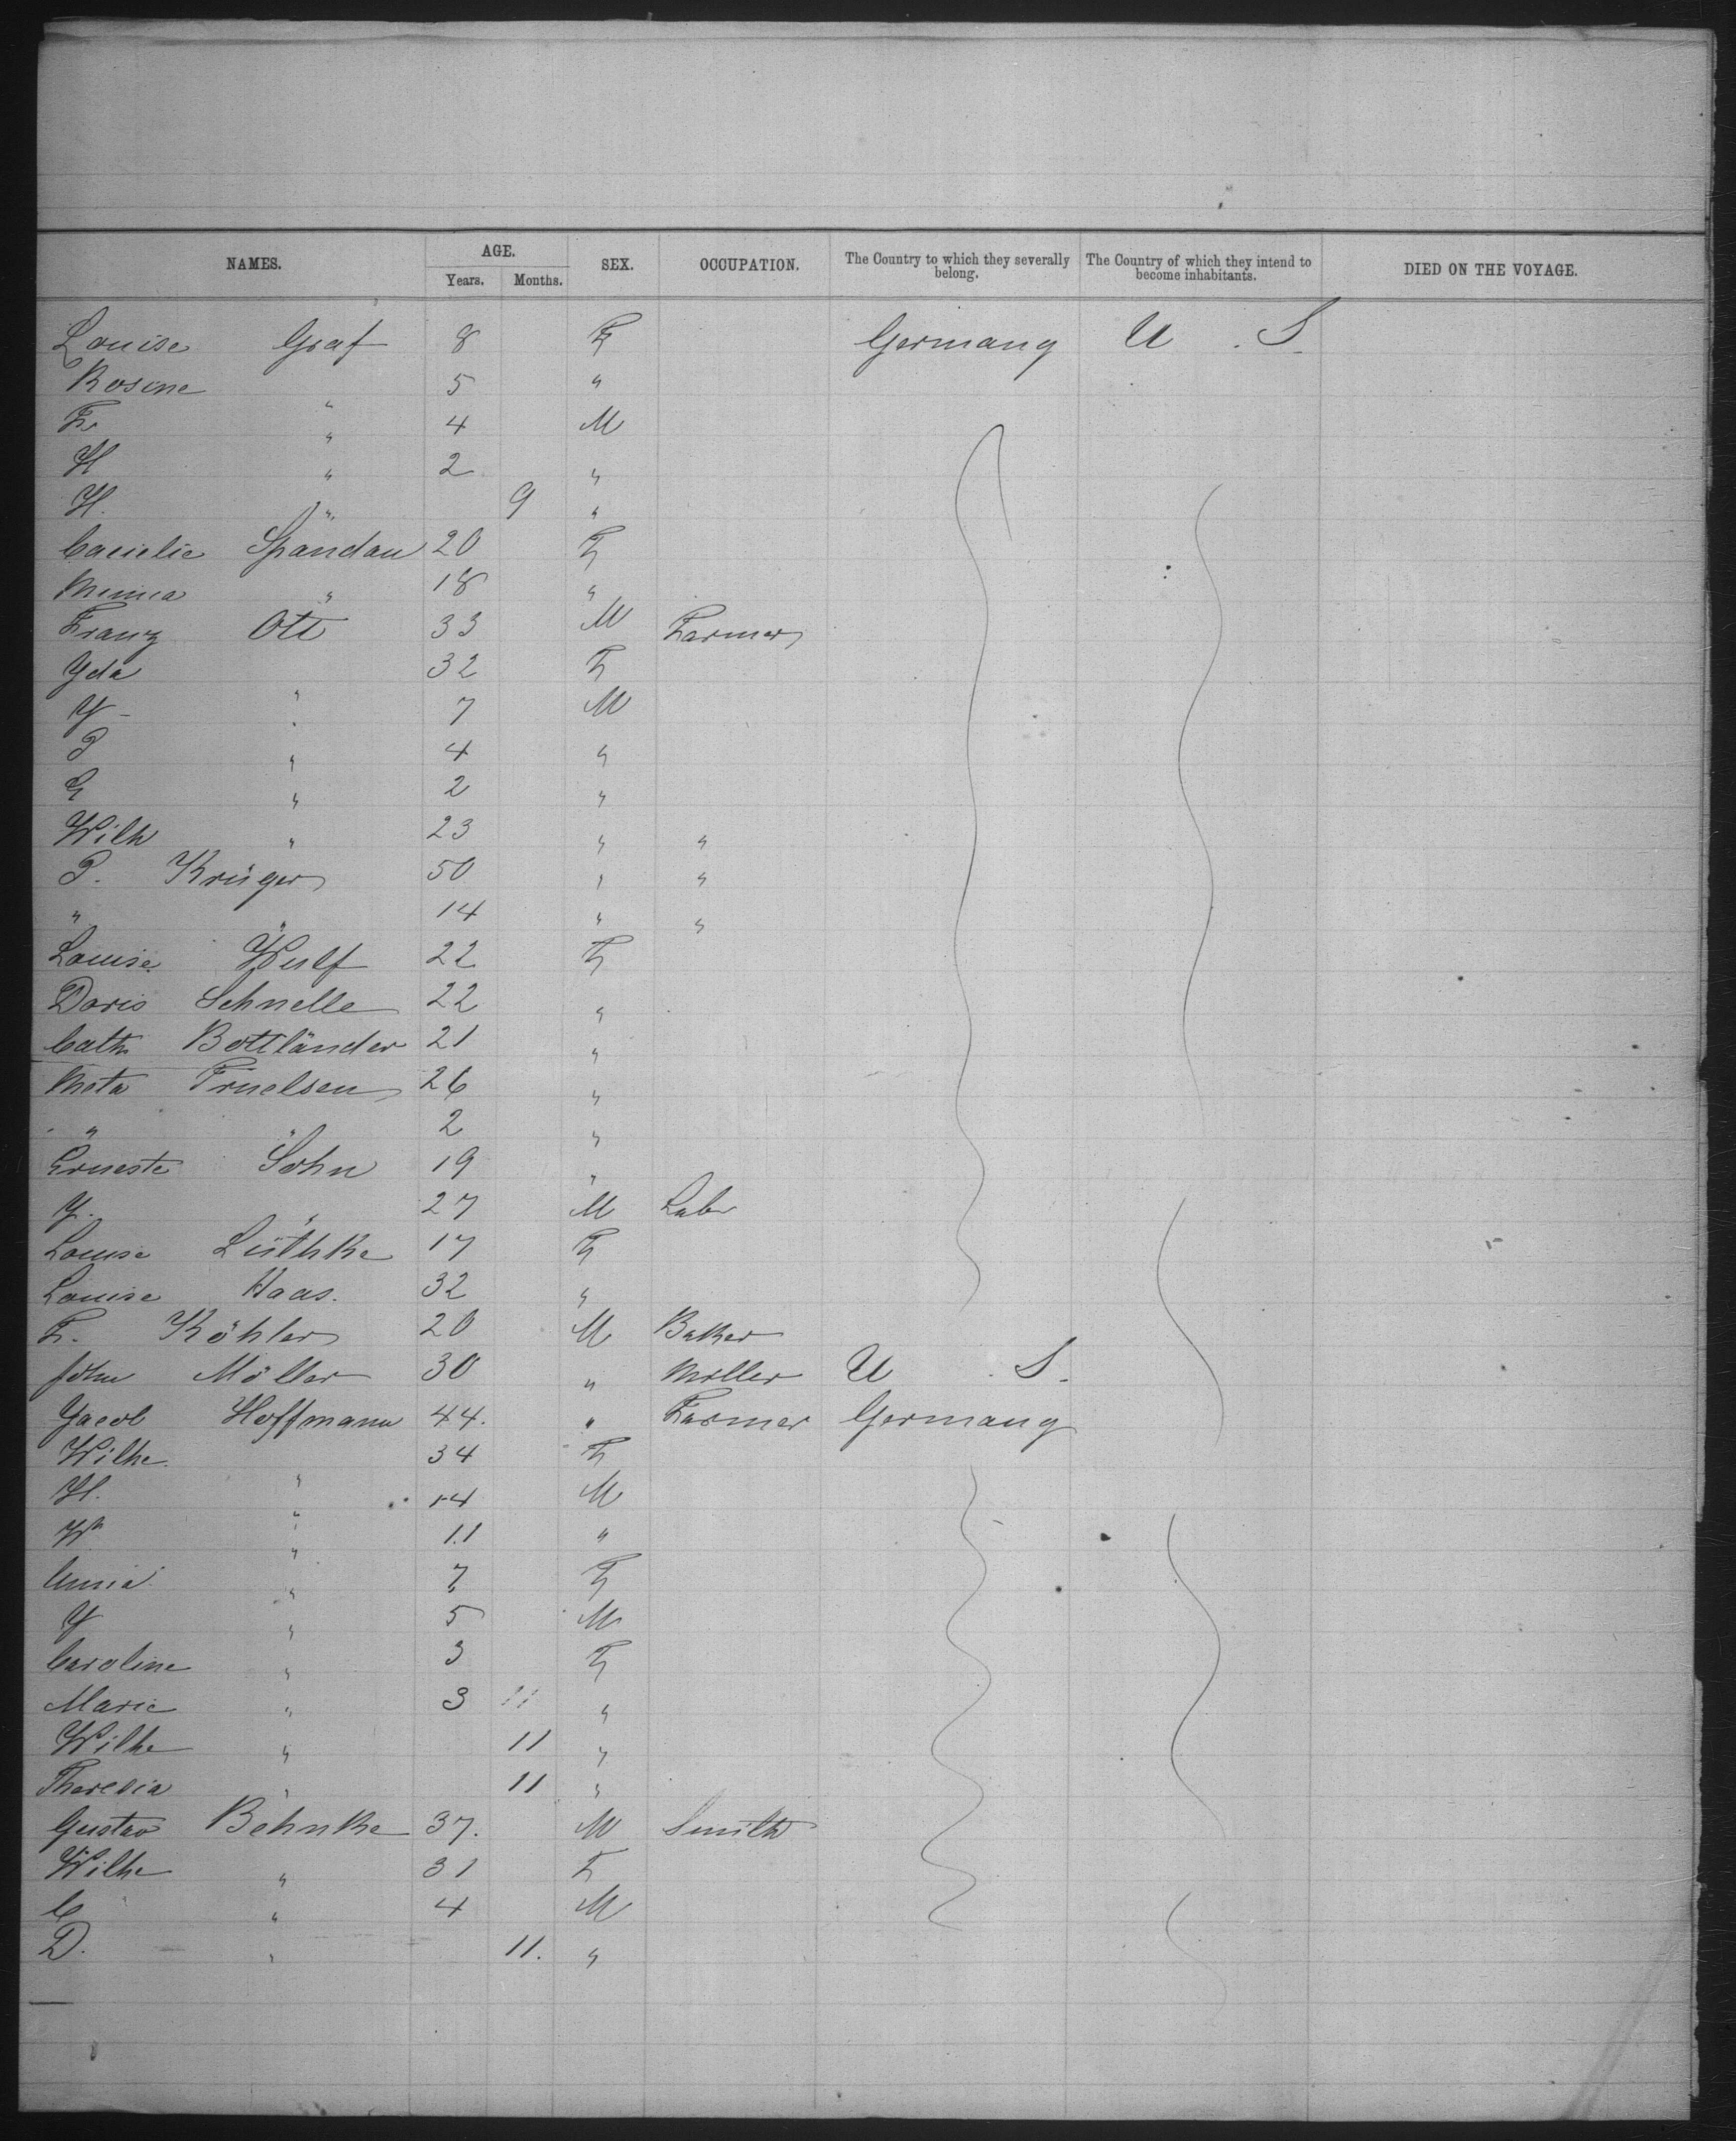 NAMES. AGE. SEX. OCCUPATION. The Country to which they severally belong. The Country of which they intend to become inhabitants. DIED ON THE VOYAGE.
Years. Months.
Louise Graf 8 F Germany U. S.
Rosine " 5 "
F. " 4 M
H " 2 "
H. " 9 "
Caecielie Spandau 20 F
Minna " 18 "
Franz Ott 33 M Farmer
Yda " 32 F
Y " 7 M
P " 4 "
G " 2 "
Wilh " 23 " "
P. Krüger 50 " "
" " 14 " "
Louise Wulf 22 F
Doris Schnelle 22 "
Cath Bottländer 21 "
Meta 26 "
" " 2 "
Erneste Sohn 19 "
Y. " 27 M Labr
Louise Lüthke 17 F
Louise Haas. 32 "
F. Köhler 20 M Baker
John Möller 30 " Miller U. S.
Yacob Hoffmann 44. " Farmer Germany
Wilhe. " 34 F
H. " 14 M
Wm " 11 "
Anna " 7 F
Y " 5 M
Caroline " 3 F
Marie " 3 11 "
Wilhe " 11 "
Theresia " 11 "
Gustav Behnke 37. M Smith
Wilhe " 31 F
C " 4 M
D. " 11. "